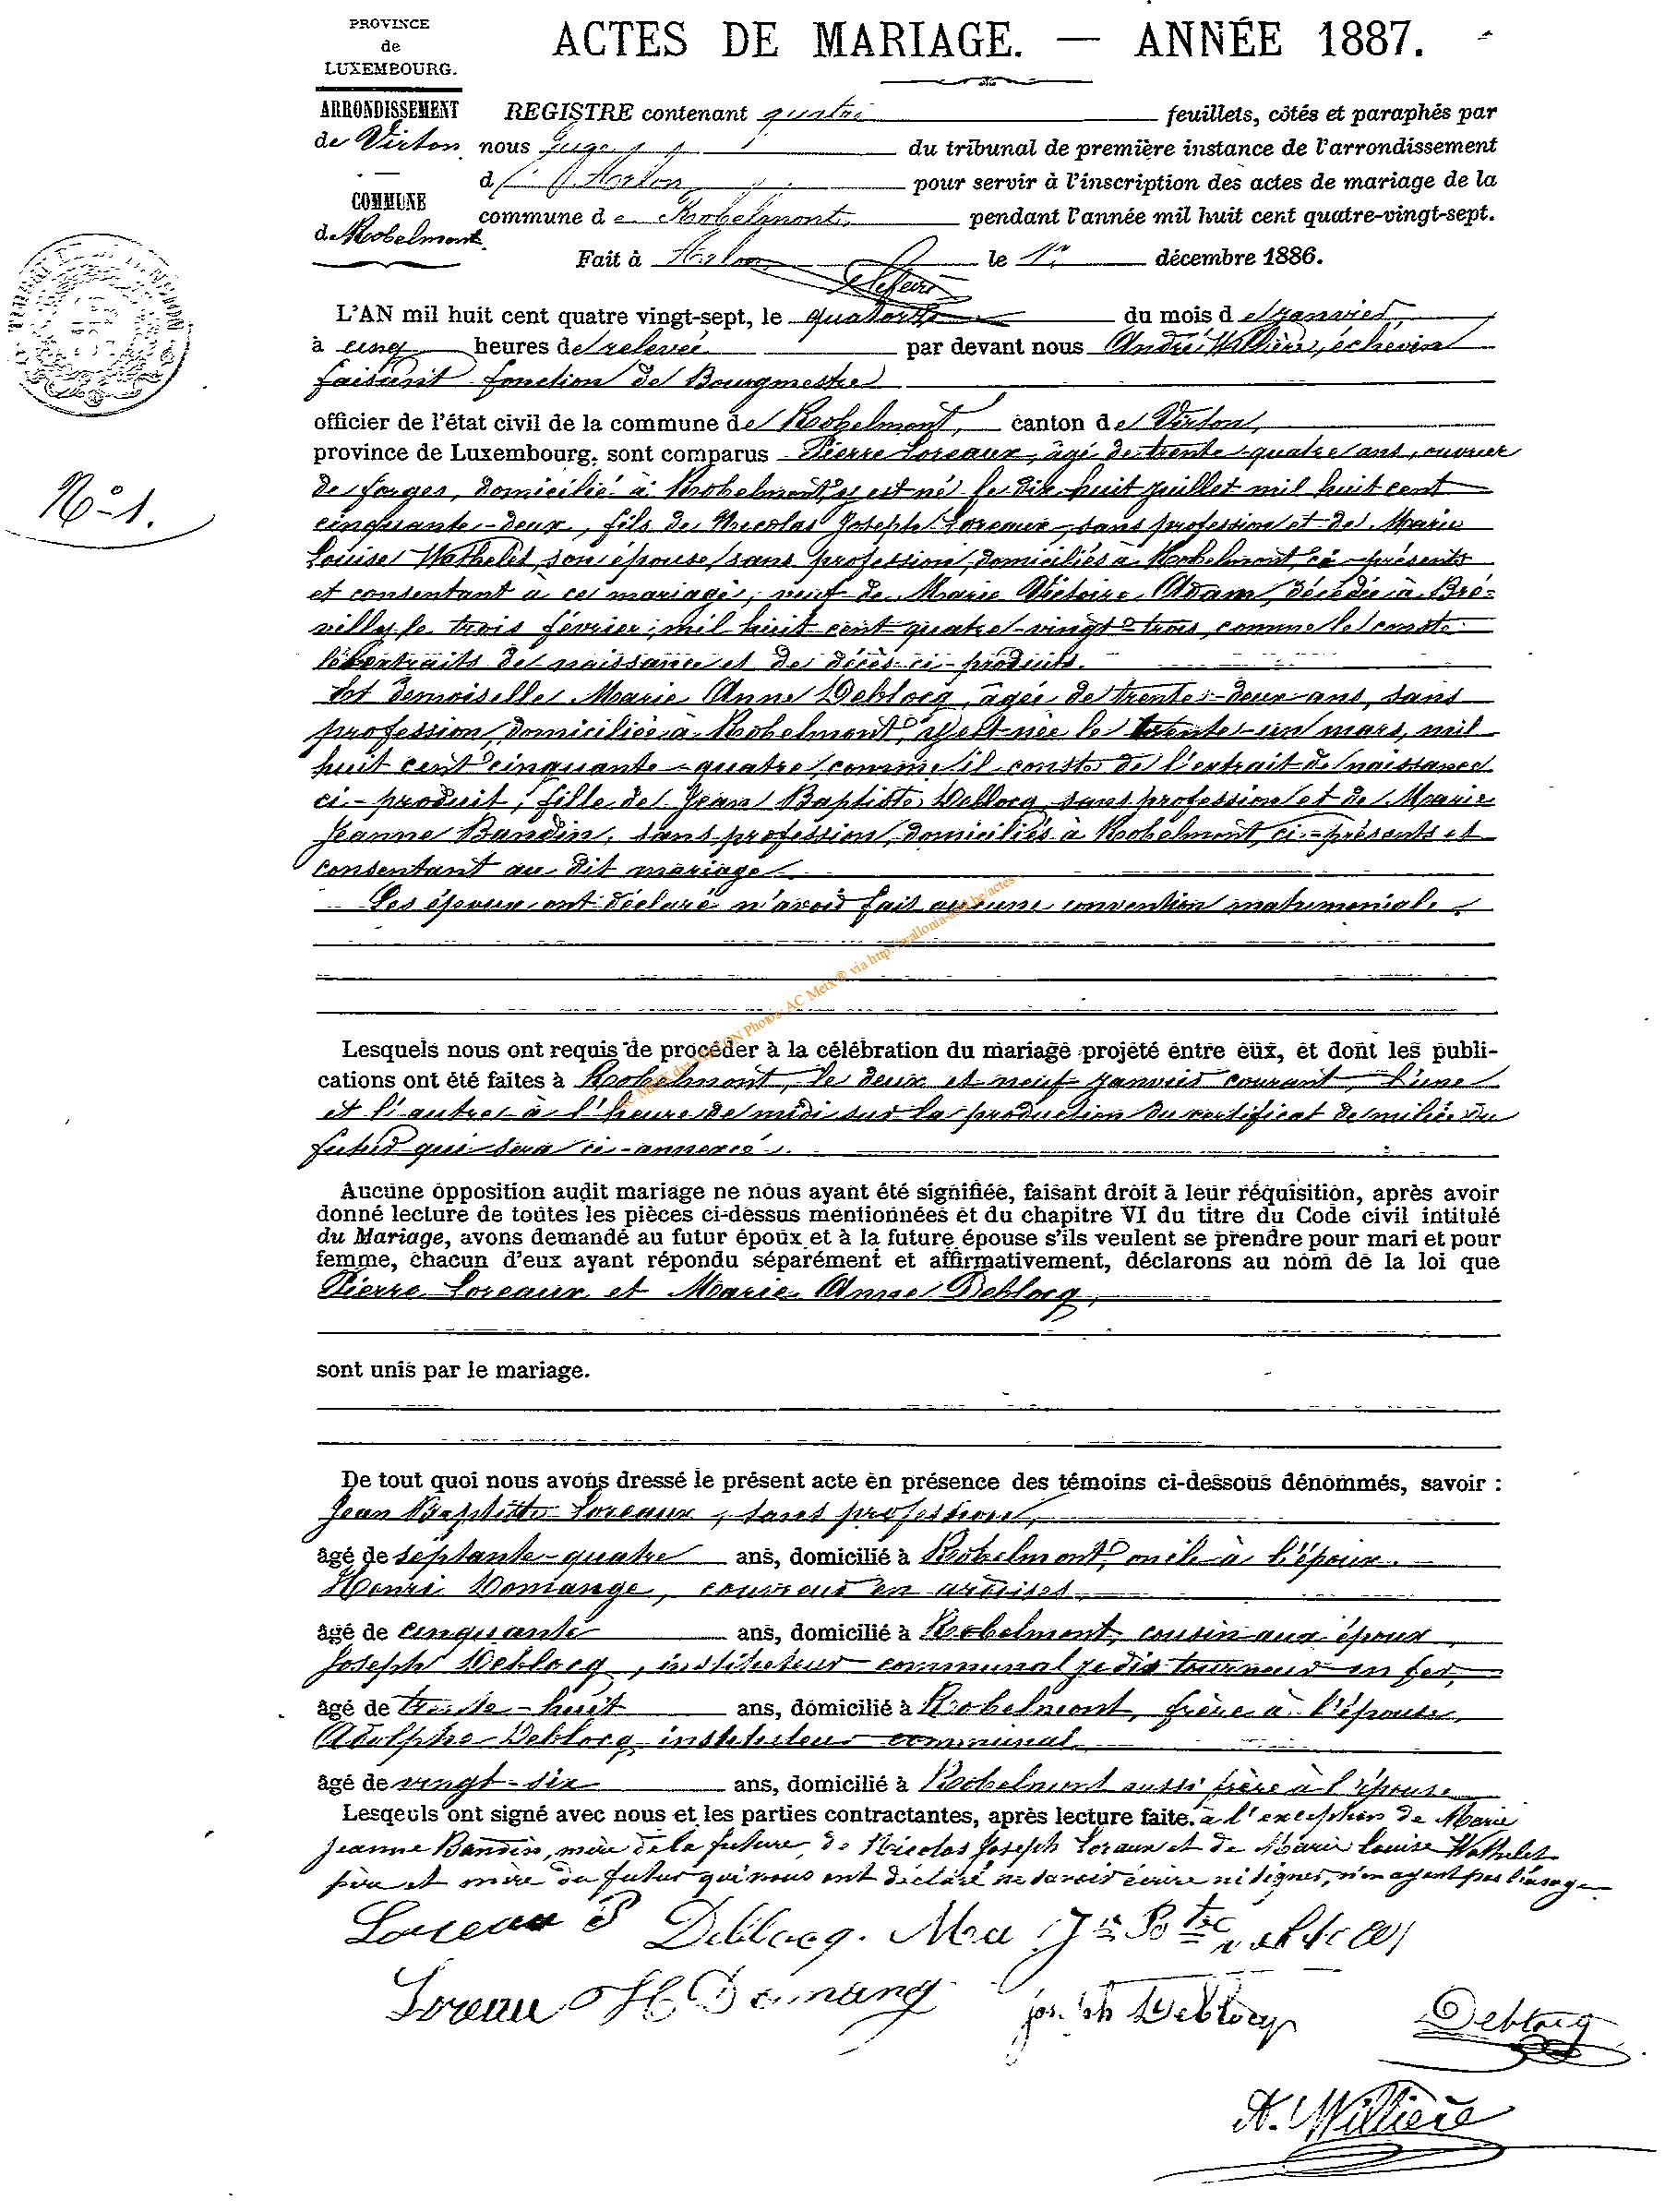 PROVINCE
de
LUXEMBOURG.
ACTES DE MARIAGE. — ANNÉE 1887.
ARRONDISSEMENT
de Virton
COMMUNE
de Robelmont
REGISTRE contenant quatre feuillets, côtés et paraphés par
nous Juge du tribunal de première instance de l'arrondissement
d'Arlon pour servir à l'inscription des actes de mariage de la
commune de Robelmont, pendant l'année mil huit cent quatre-vingt-sept.
Fait à Arlon le 1er décembre 1886.
L'AN mil huit cent quatre vingt-sept, le quatorze du mois de janvier,
à cinq heures de relevée par devant nous André Willière, échevin
faisant fonction de Bourgmestre
officier de l'état civil de la commune de Robelmont, canton de Virton,
province de Luxembourg, sont comparus Pierre Loreaux, âgé de trente-quatre ans, ouvrier
N° 1.
de forges, domicilié à Robelmont, y est né le dix-huit juillet mil huit cent
cinquante-deux, fils de Nicolas Joseph Loreaux, sans profession et de Marie
Louise Wathelet, son épouse, sans profession, domiciliés à Robelmont, ci-présents
et consentant à ce mariage, veuf de Marie Victoire Adam, décédée à Bré-
villy le trois février mil huit cent quatre-vingt-trois, comme le conste
les extraits de naissance et de décès ci-produits.
Et demoiselle Marie Anne Deblocq, âgée de trente-deux ans, sans
profession, domiciliée à Robelmont, y est née le trente-un mars, mil
huit cent cinquante-quatre, comme il conste de l'extrait de naissance
ci-produit, fille de Jean Baptiste Deblocq sans profession et de Marie
Jeanne Bandin, sans profession, domiciliés à Robelmont, ci-présents et
consentant au dit mariage
Les époux ont déclaré n'avoir fait aucune convention matrimoniale.
AC Meix dvt VIRTON Photos: AC Meix® via http://wallonia-asbl.be/actes
Lesquels nous ont requis de procéder à la célébration du mariage projeté entre eux, et dont les publi-
cations ont été faites à Robelmont, le deux et neuf janvier courant, l'une
et l'autre à l'heure de midi sur la production du certificat de milice du
futur qui sera ci-annexé.
Aucune opposition audit mariage ne nous ayant été signifiée, faisant droit à leur réquisition, après avoir
donné lecture de toutes les pièces ci-dessus mentionnées et du chapitre VI du titre du Code civil intitulé
du Mariage, avons demandé au futur époux et à la future épouse s'ils veulent se prendre pour mari et pour
femme, chacun d'eux ayant répondu séparément et affirmativement, déclarons au nom de la loi que
Pierre Loreaux et Marie Anne Deblocq,
sont unis par le mariage.
De tout quoi nous avons dressé le présent acte en présence des témoins ci-dessous dénommés, savoir :
Jean Baptiste Loreaux, sans profession,
âgé de septante-quatre ans, domicilié à Robelmont, oncle à l'époux.
Henri Domange, couvreur en ardoises,
âgé de cinquante ans, domicilié à Robelmont, cousin aux époux
Joseph Deblocq, instituteur communal je dis tourneur en fer,
âgé de trente-huit ans, domicilié à Robelmont, frère à l'épouse,
Adolphe Deblocq instituteur communal
âgé de vingt-six ans, domicilié à Robelmont aussi frère à l'épouse
Lesqeuls ont signé avec nous et les parties contractantes, après lecture faite. à l'exception de Marie
Jeanne Bandin, mère de la future, de Nicolas Joseph Loraux et de Marie Louise Wathelet
père et mère du futur qui nous ont déclaré ne savoir écrire ni signer, n'en ayant pas l'usage
Loreaux P Deblocq. Ma Jn Btte
Loreau H Domang Joseph Deblocq Deblocq
A. Willière